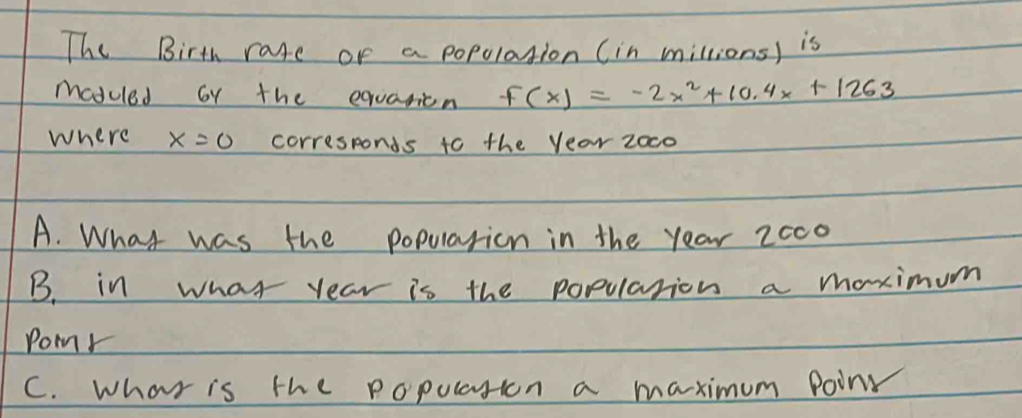 The Birth rate of a population (in millions) is
moduled by the equation f(x) = -2x²+10.4x + 1263
where x=0 corresponds to the year 2000
A. What was the population in the year 2000
B. in what year is the population a maximum
Point
C. what is the population a maximum point